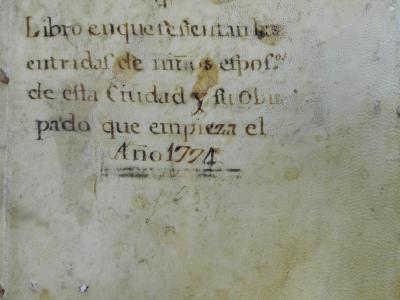 Libro en que se sientan las
entridas de niños espos.os
de esta Ciudad y su Obis
pado que empieza el
Año 1774